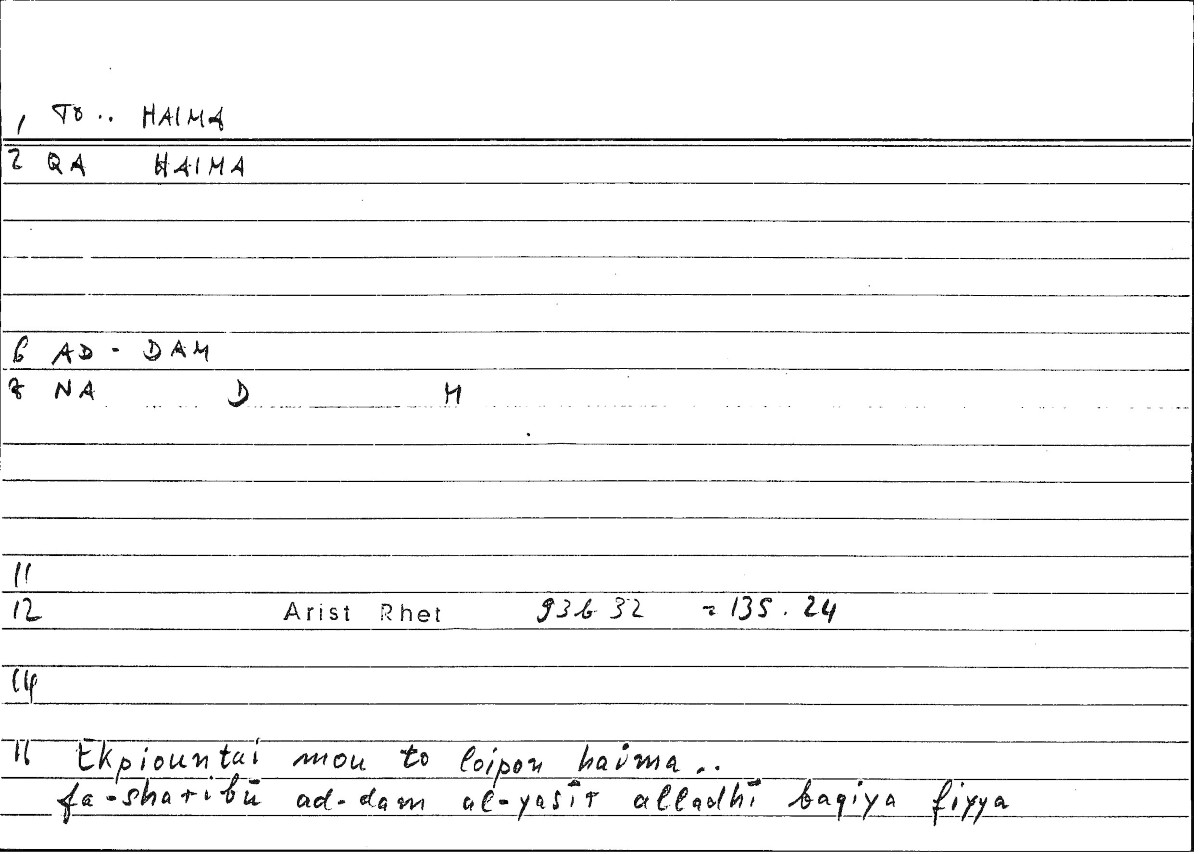 1 TO .. HAIMA
2 QA HAIMA
6 AD - DAM
8 NA D M
11
12 Arist Rhet 93b 32 = 135. 24
14
11 Ekpiountai mou to loipon haima ..
fa-sharibū ad-dam al-yasīr alladhī baqiya fiyya